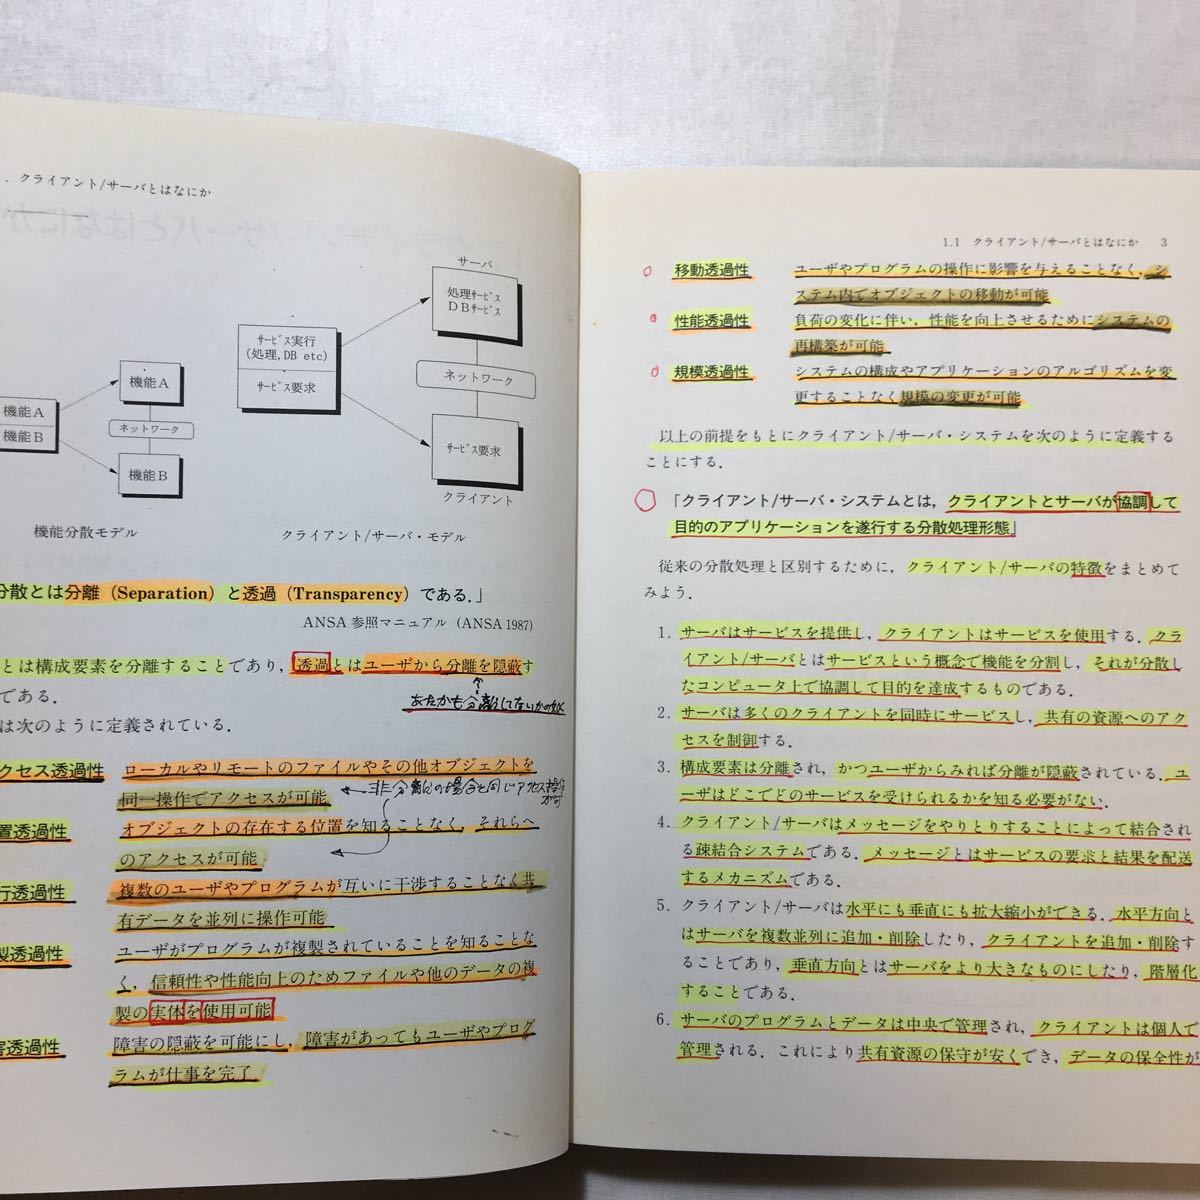 . クライアント/サーバとはなにか
機能A
機能B
機能A
ネットワーク
機能B
機能分散モデル
サービス実行
(処理, DB etc)
サービス要求
サーバ
処理サービス
DBサービス
ネットワーク
サービス要求
クライアント
クライアント/サーバ・モデル
分散とは分離 (Separation) と透過 (Transparency) である.」
ANSA 参照マニュアル (ANSA 1987)
とは構成要素を分離することであり, 透過とはユーザから分離を隠蔽す
である.
あたかも分離していないかの如く
は次のように定義されている.
クセス透過性 ローカルやリモートのファイルやその他オブジェクトを
同一操作でアクセスが可能
←非分離の場合と同じアクセス操作
が可
置透過性 オブジェクトの存在する位置を知ることなく, それらへ
のアクセスが可能
行透過性 複数のユーザやプログラムが互いに干渉することなく共
有データを並列に操作可能
製透過性 ユーザがプログラムが複製されていることを知ることな
く, 信頼性や性能向上のためファイルや他のデータの複
製の実体を使用可能
害透過性 障害の隠蔽を可能にし, 障害があってもユーザやプログ
ラムが仕事を完了
1.1 クライアント/サーバとはなにか 3
移動透過性 ユーザやプログラムの操作に影響を与えることなく, シ
ステム内でオブジェクトの移動が可能
性能透過性 負荷の変化に伴い, 性能を向上させるためにシステムの
再構築が可能
規模透過性 システムの構成やアプリケーションのアルゴリズムを変
更することなく規模の変更が可能
以上の前提をもとにクライアント/サーバ・システムを次のように定義する
ことにする.
「クライアント/サーバ・システムとは, クライアントとサーバが協調して
目的のアプリケーションを遂行する分散処理形態」
従来の分散処理と区別するために, クライアント/サーバの特徴をまとめて
みよう.
1. サーバはサービスを提供し, クライアントはサービスを使用する. クラ
イアント/サーバとはサービスという概念で機能を分割し, それが分散し
たコンピュータ上で協調して目的を達成するものである.
2. サーバは多くのクライアントを同時にサービスし, 共有の資源へのアク
セスを制御する.
3. 構成要素は分離され, かつユーザからみれば分離が隠蔽されている. ユ
ーザはどこでどのサービスを受けられるかを知る必要がない.
4. クライアント/サーバはメッセージをやりとりすることによって結合され
る疎結合システムである. メッセージとはサービスの要求と結果を配送
するメカニズムである.
5. クライアント/サーバは水平にも垂直にも拡大縮小ができる. 水平方向と
はサーバを複数並列に追加・削除したり, クライアントを追加・削除す
ることであり, 垂直方向とはサーバをより大きなものにしたり, 階層化
することである.
6. サーバのプログラムとデータは中央で管理され, クライアントは個人で
管理される. これにより共有資源の保守が安くでき, データの保全性が